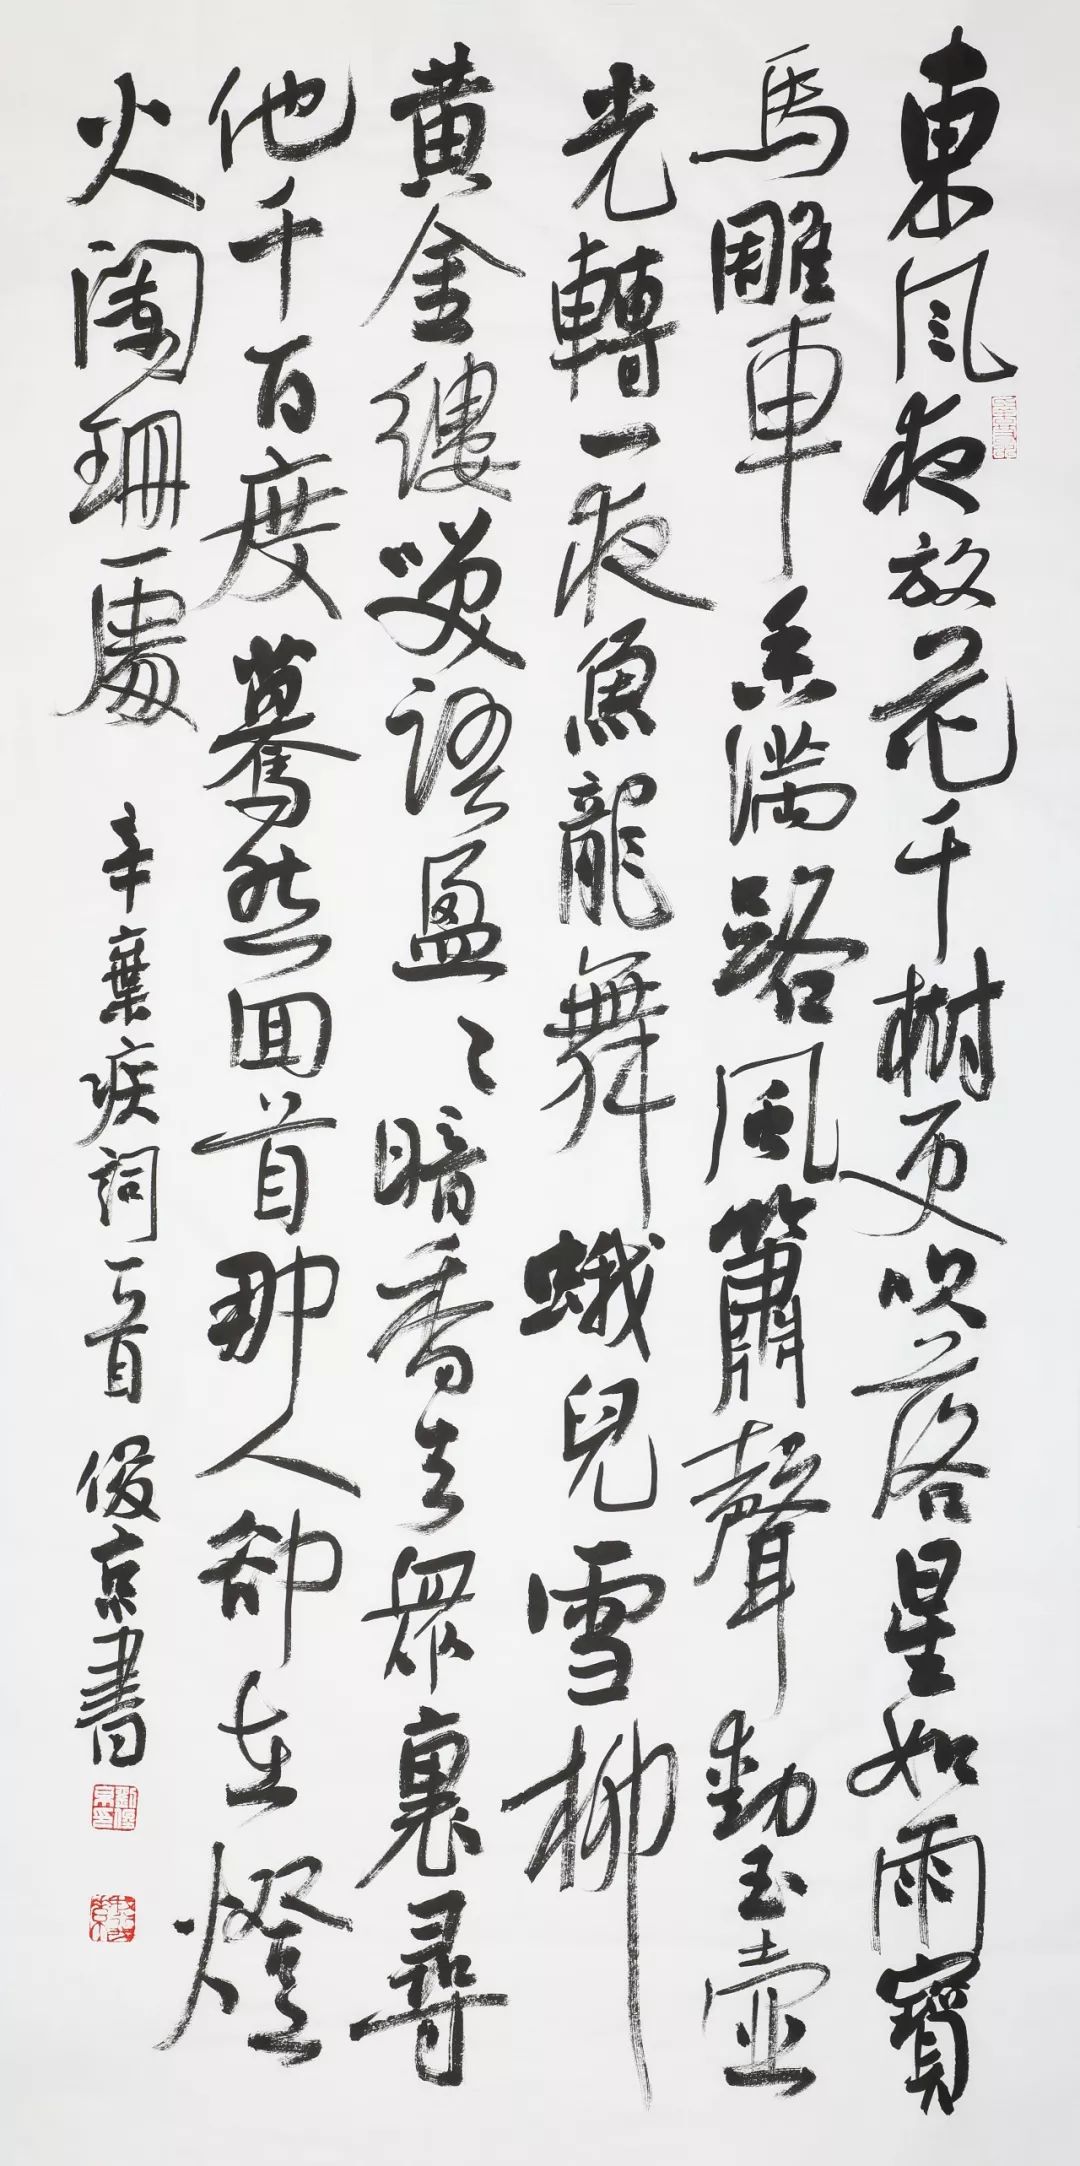 東風夜放花千樹更吹落星如雨寶
馬雕車香滿路風簫聲動玉壺
光轉一夜魚龍舞蛾兒雪柳
黃金縷笑語盈〻暗香去眾裏尋
他千百度驀然回首那人卻在燈
火闌珊處
辛棄疾詞一首 俊京書